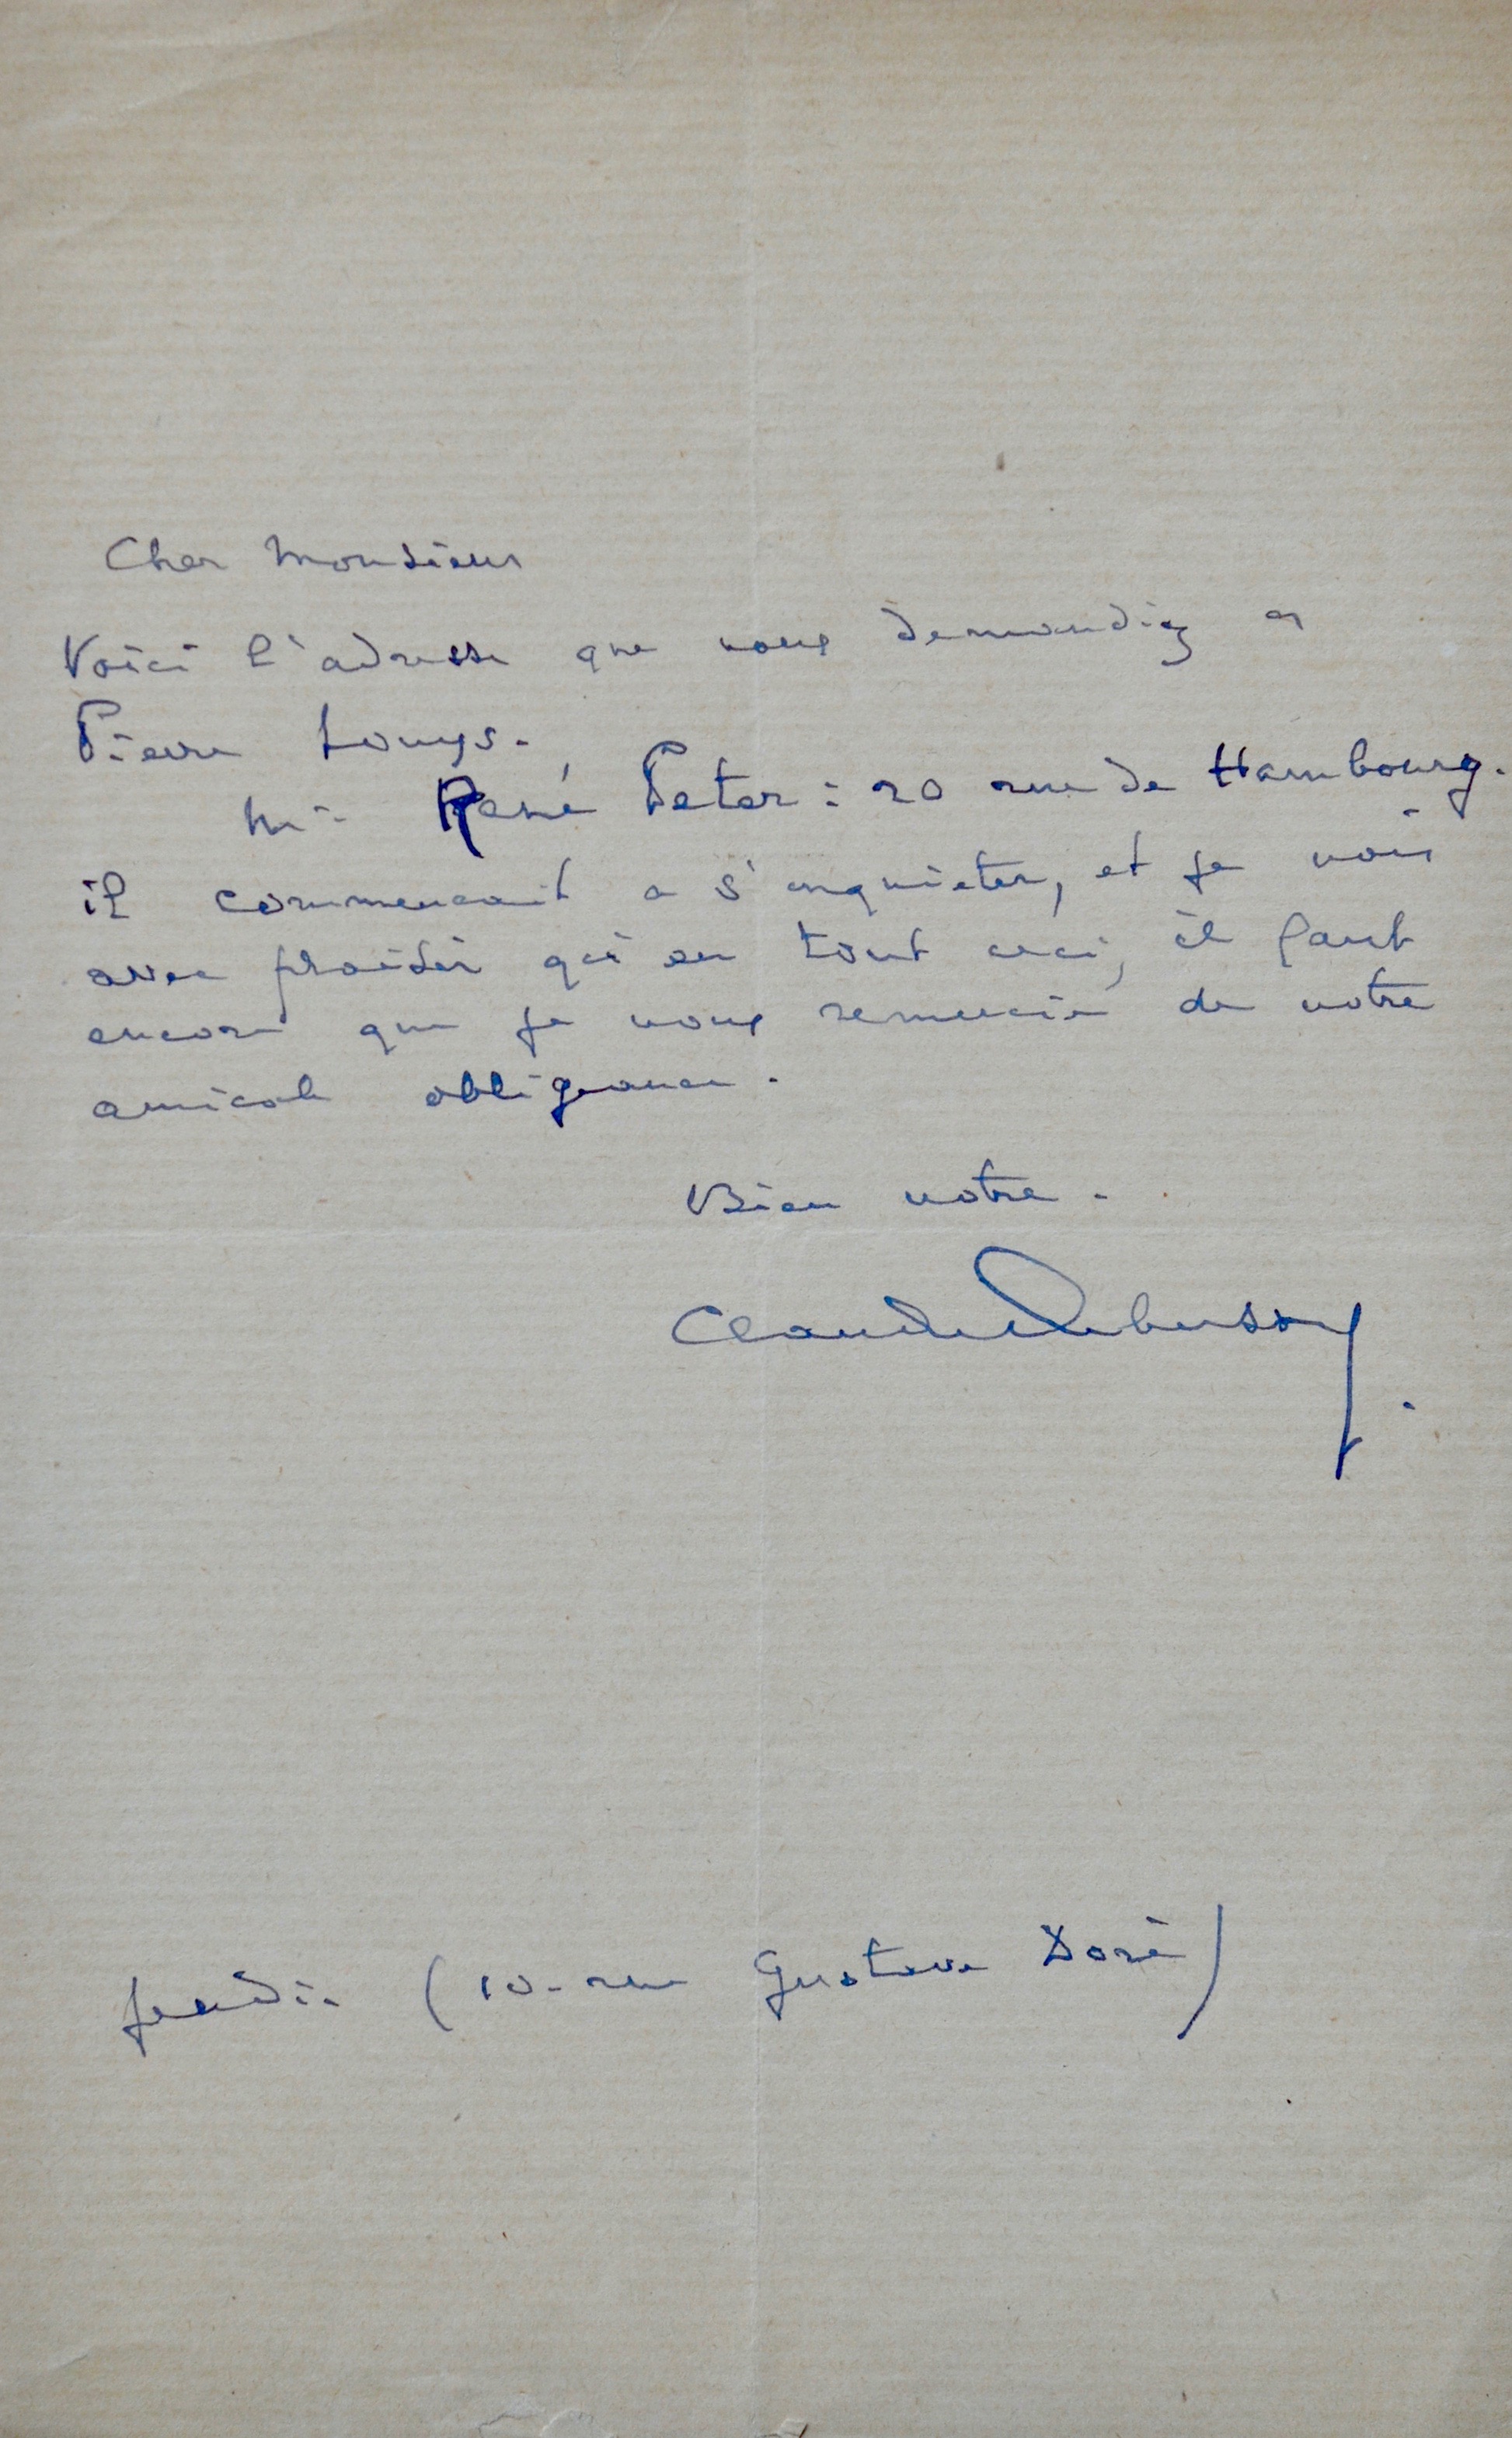 Cher Monsieur
Voici l'adresse que vous demandiez a
Pierre Louys.
Mr René Peter : 20 rue de Hambourg.
il commencait a s'inquieter, et je vois
avec plaisir qu'en tout ceci, il faut
encore que je vous remercie de votre
amicale obligeance.
Bien votre.
Claude Debussy.
jeudi. (10. rue Gustave Doré)